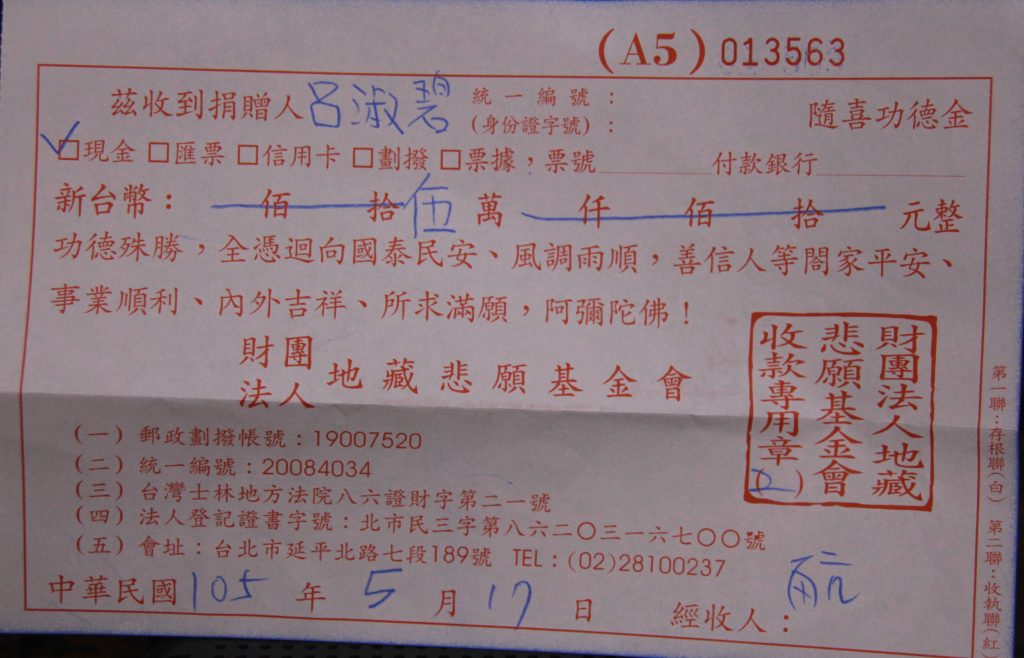 (A5) 013563
茲收到捐贈人 呂淑碧 統一編號：
(身份證字號)： 隨喜功德金
✓□現金 □匯票 □信用卡 □劃撥 □票據，票號 付款銀行
新台幣： 佰 拾 伍 萬 仟 佰 拾 元整
功德殊勝，全憑迴向國泰民安、風調雨順，善信人等閤家平安、
事業順利、內外吉祥、所求滿願，阿彌陀佛！
財團法人 地藏悲願基金會
財團法人地藏悲願基金會收款專用章
(一) 郵政劃撥帳號：19007520
(二) 統一編號：20084034
(三) 台灣士林地方法院八六證財字第二一號
(四) 法人登記證書字號：北市民三字第八六二〇三一六七〇〇號
(五) 會址：台北市延平北路七段189號 TEL：(02)28100237
中華民國 105 年 5 月 17 日 經收人：
第一聯：存根聯(白) 第二聯：收執聯(紅)